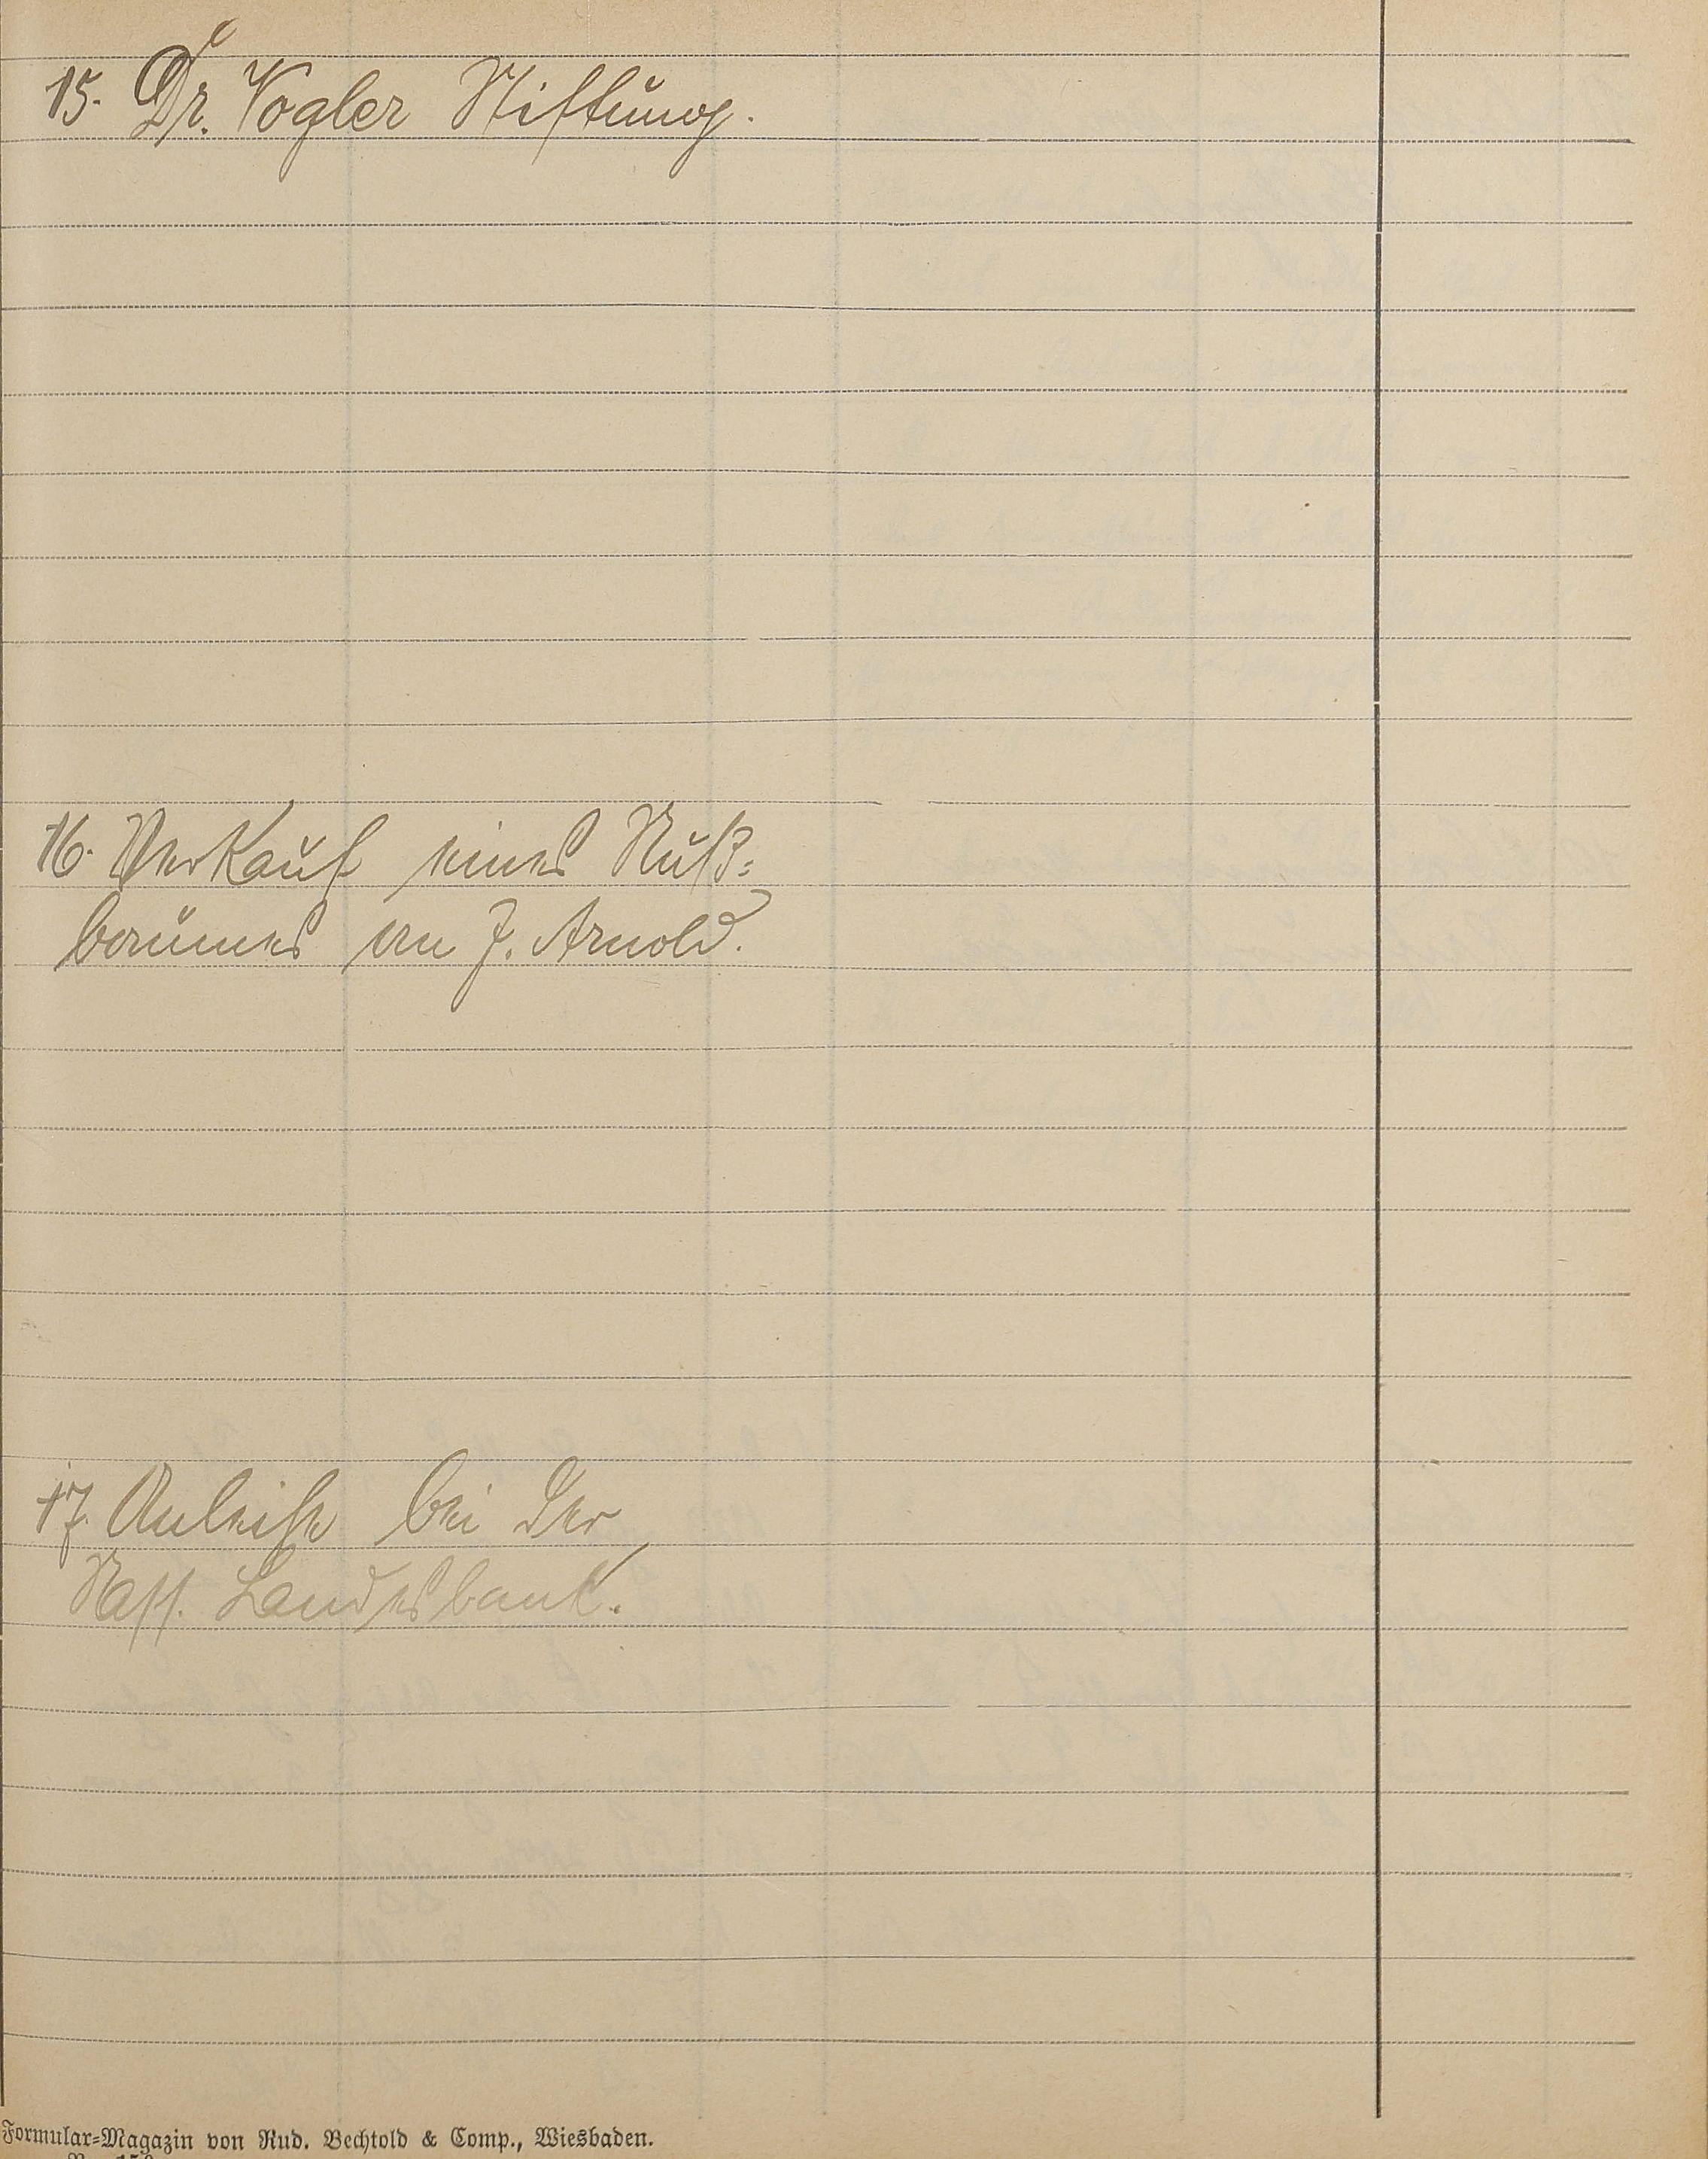 15. Dr. Vogler Stiftung.
16. Verkauf eines Nuß=
baumes an J. Arnold.
17. Anleihe bei der
Nass. Landesbank.
Formular=Magazin von Rud. Bechtold & Comp., Wiesbaden.